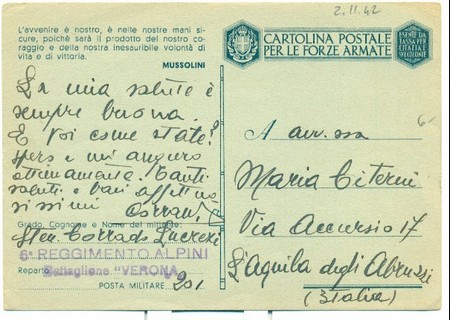 2.11.42
L'avvenire è nostro, è nelle nostre mani si-
cure, poichè sarà il prodotto del nostro co-
raggio e della nostra inesauribile volontà di
vita e di vittoria.
MUSSOLINI
CARTOLINA POSTALE
PER LE FORZE ARMATE
ESENTE DA
TASSA PER
CITTÀ E
La mia salute è
sempre buona.
E Voi come state?
spero e mi auguro
ottimamente. Tanti
saluti e baci affettuo
sissimi
Corrado
Grado, Cognome e Nome del mittente:
Sten. Corrado
6° REGGIMENTO ALPINI
Reparto Battaglione "VERONA"
POSTA MILITARE 201
6/-
A
Maria Citerni
Via Accursio 17
L'Aquila degli Abruzzi
(Italia)